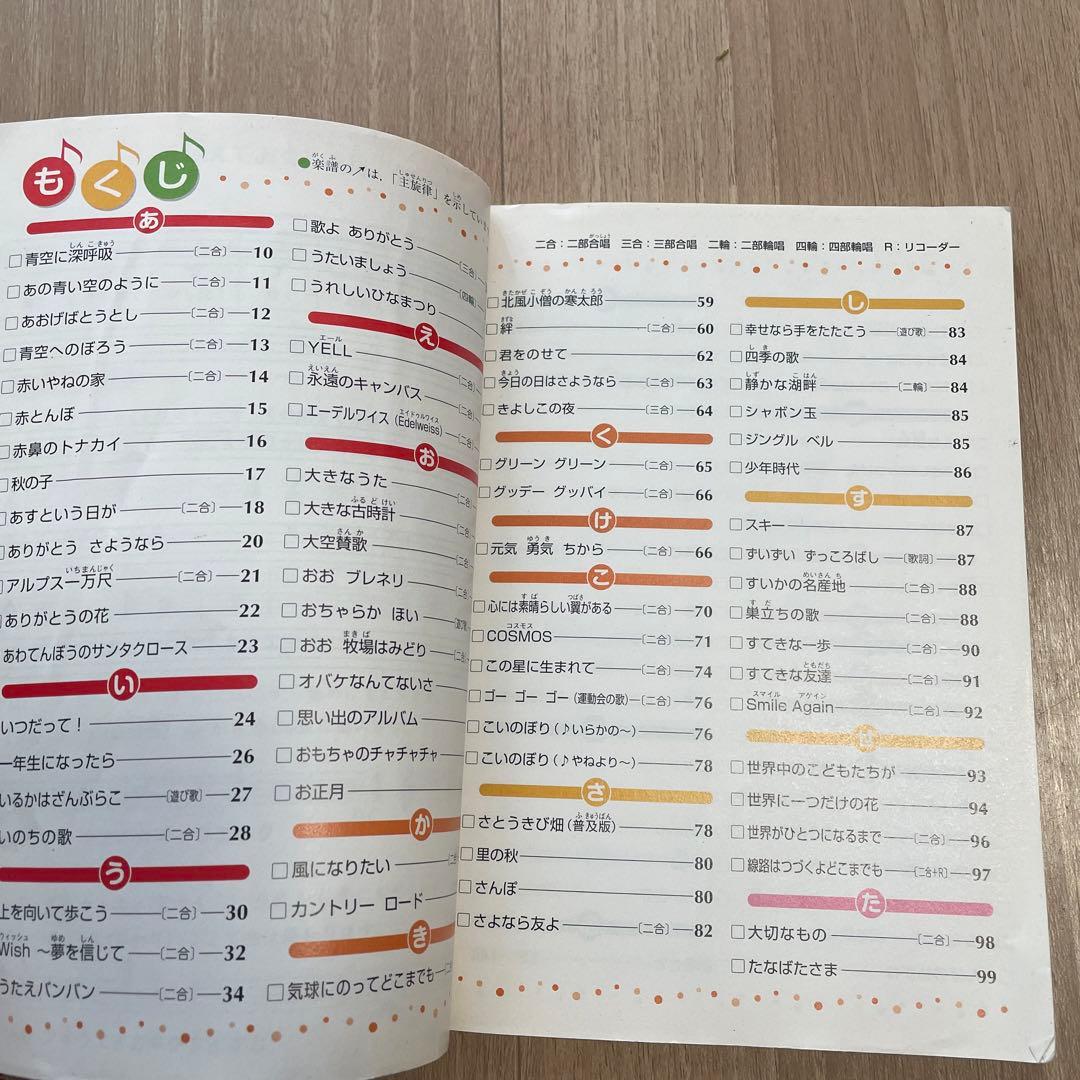 もくじ
●楽譜の↗は,「主旋律」を示してい
あ
□青空に深呼吸 〔二合〕 10
□あの青い空のように 〔二合〕 11
□あおげばとうとし 〔二合〕 12
□青空へのぼろう 〔二合〕 13
□赤いやねの家 〔二合〕 14
□赤とんぼ 15
□赤鼻のトナカイ 16
□秋の子 17
□あすという日が 〔二合〕 18
□ありがとう さようなら 20
□アルプス一万尺 〔二合〕 21
ありがとうの花 22
あわてんぼうのサンタクロース 23
い
いつだって! 24
一年生になったら 26
いるかはざんぶらこ 〔遊び歌〕 27
いのちの歌 〔二合〕 28
う
上を向いて歩こう 〔二合〕 30
Wish 〜夢を信じて 〔二合〕 32
うたえバンバン 〔二合〕 34
□歌よ ありがとう
□うたいましょう 〔三合〕
□うれしいひなまつり 〔四輪〕
え
□YELL
□永遠のキャンバス
□エーデルワイス (Edelweiss) 〔二合
お
□大きなうた 〔二合
□大きな古時計 〔二合
□大空賛歌 〔二合
□おお ブレネリ
□おちゃらか ほい 〔遊び
□おお 牧場はみどり 〔二合
□オバケなんてないさ
□思い出のアルバム
□おもちゃのチャチャチャ
□お正月
か
□風になりたい
□カントリー ロード
き
□気球にのってどこまでも
二合:二部合唱 三合:三部合唱 二輪:二部輪唱 四輪:四部輪唱 R:リコーダー
□北風小僧の寒太郎 59
□絆 〔二合〕 60
□君をのせて 62
□今日の日はさようなら 〔二合〕 63
□きよしこの夜 〔三合〕 64
く
□グリーン グリーン 〔二合〕 65
□グッデー グッバイ 〔二合〕 66
け
□元気 勇気 ちから 〔二合〕 66
こ
□心には素晴らしい翼がある 〔二合〕 70
□COSMOS 〔二合〕 71
□この星に生まれて 〔二合〕 74
□ゴー ゴー ゴー (運動会の歌) 〔二合〕 76
□こいのぼり (♪いらかの〜) 76
□こいのぼり (♪やねより〜) 78
さ
□さとうきび畑 (普及版) 78
□里の秋 80
□さんぽ 80
□さよなら友よ 〔二合〕 82
し
□幸せなら手をたたこう 〔遊び歌〕 83
□四季の歌 84
□静かな湖畔 〔二輪〕 84
□シャボン玉 85
□ジングル ベル 85
□少年時代 86
す
□スキー 87
□ずいずい ずっころばし 〔歌詞〕 87
□すいかの名産地 〔二合〕 88
□巣立ちの歌 〔二合〕 88
□すてきな一歩 〔二合〕 90
□すてきな友達 〔二合〕 91
□Smile Again 〔二合〕 92
せ
□世界中のこどもたちが 93
□世界に一つだけの花 94
□世界がひとつになるまで 〔二合〕 96
□線路はつづくよどこまでも 〔二合+R〕 97
た
□大切なもの 〔二合〕 98
□たなばたさま 99